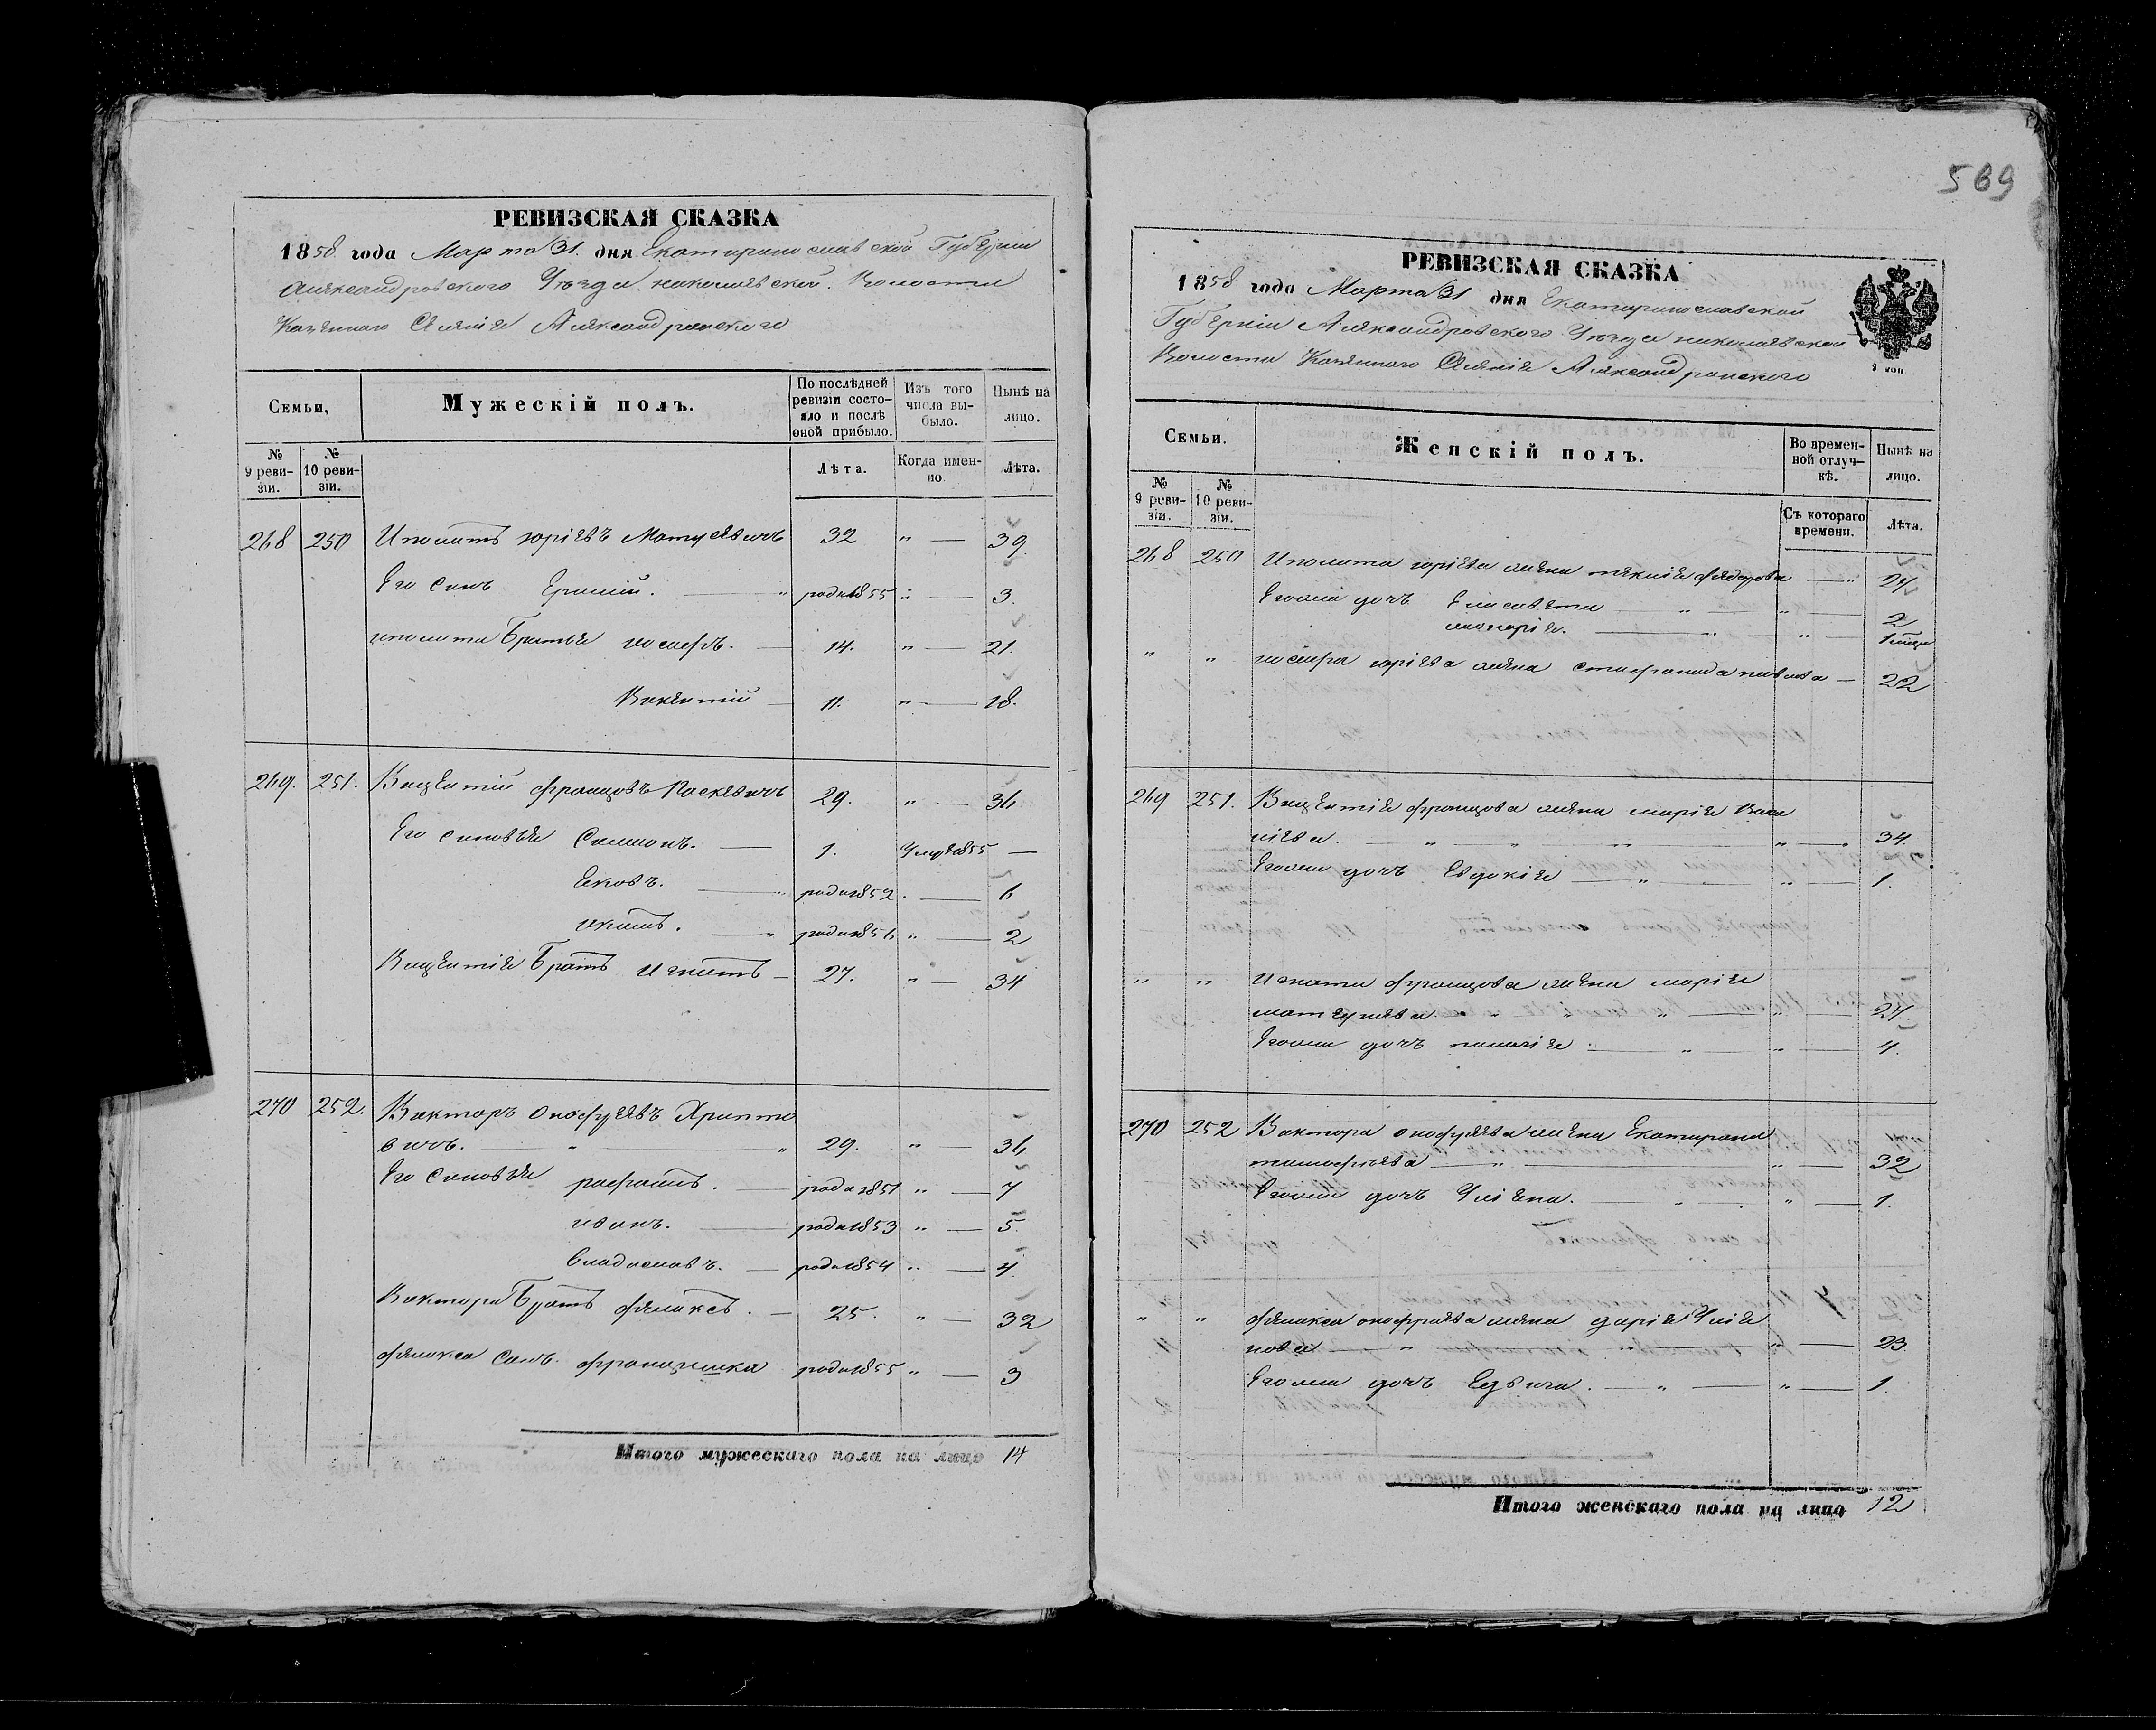 РЕВИЗСКАЯ СКАЗКА
1858 года Марта 31. дня Екатиринославской Губерніи
Александровского Уезда николаевской. Волости
Казенного Селенія Александровского
Семьи,
Мужескій полъ.
По послѣдней ревизіи состояло и послѣ оной прибыло.
Изъ того числа выбыло.
Нынѣ на лицо.
№ 9 ревизіи.
№ 10 ревизіи.
Лѣта.
Когда именно
Лѣта.
268 250 Иполитъ юріевъ Матусевичъ 32 " — 39.
Его Синъ — " родил 1855 " — 3.
иполита Братья иосифъ. — 14. " — 21.
Викентий — 11. " — 18.
269. 251. Вицентий францовъ Паскевичъ 29. " — 36
Его Синовья Симионъ. — 1. Умре 1855 —
Яковъ. — " родил 1852 . — 6
— " родил 1856 " — 2
Вицентия Братъ Игнатъ — 27. " — 34
270 252. Викторъ онофреевъ Хрипто
вичъ. " " 29. " — 36
Его Синовья рафаилъ. — родил 1851 " — 7
иванъ. — родил 1853 " — 5.
Владиславъ. — родил 1854 " — 4.
Виктора Братъ феликсъ. — 25. " — 32
феликса Синъ. францишка родил 1855 " — 3
Итого мужескаго пола на лицо 14
569
РЕВИЗСКАЯ СКАЗКА
1858 года Марта 31 дня Екатиринославской
Губерніи Александровского Уезда николаевской
Волости Казенного Селенія Александровского
Семьи.
Женскій полъ.
Во временной отлучкѣ.
Нынѣ на лицо.
№ 9 ревизіи.
№ 10 ревизіи.
Съ котораго времени.
Лѣта.
268 250 Иполита юріева жена фядорова — " 27
Егожа дочъ Елисавета — " — " — 2
— " — " — 1
" " иосифа юріева жена стифанида павлова — 22
269 251. Вицентія францова жена марія Васи
ліева. — " " " " — 34.
Егожа дочъ Евдокія — " — " — 1.
" " Игната францова жена марія
" " — " — 27.
Егожа дочъ — " — " — 4.
270 252 Виктора онофреева жена Екатирина
тимофіева — " — " — 32
Егожа дочъ Уліяна. — " — 1.
" " феликса онофріева жена дарія Улія
нова — " " — " — 23.
Егожа дочъ Ядвига. — " — " — 1.
Итого женскаго пола на лицо 12